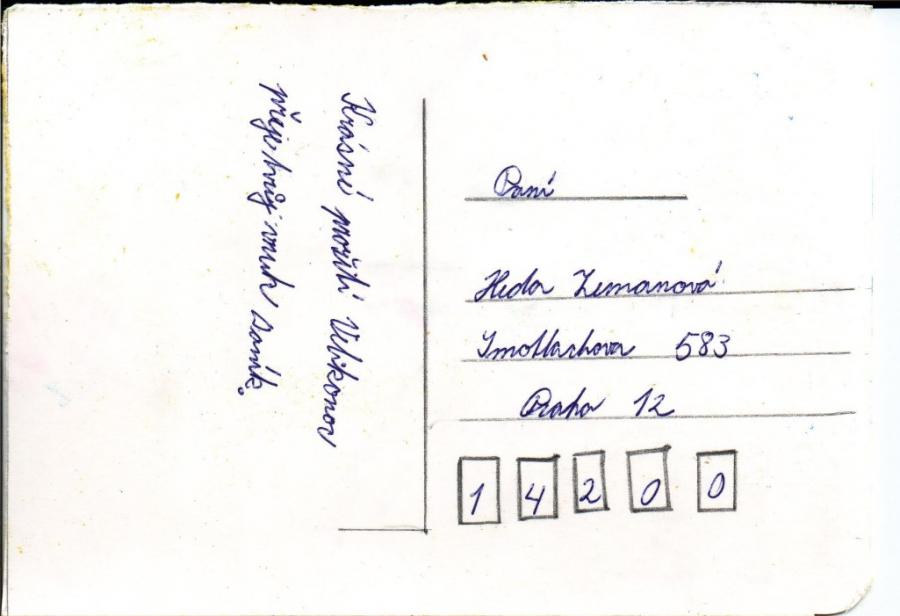 Krásné prožití Velikonoc
přeje tvůj vnuk Daník.
Paní
Heda Zemanová
Smotlachova 583
Praha 12
1 4 2 0 0